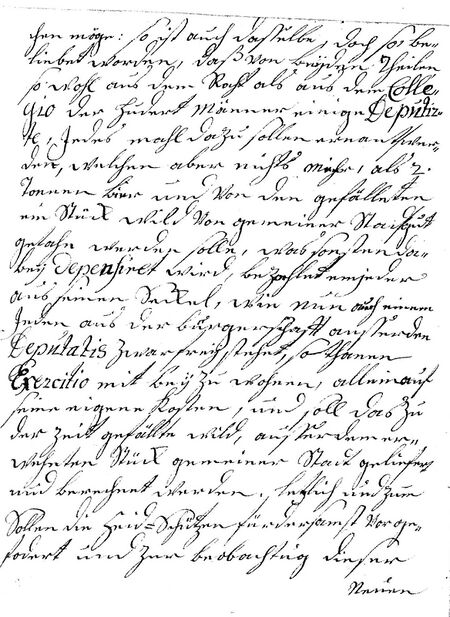 chen möge: so ist auch dasselbe, doch so be-
liebet worden, daß von beyden Theilen
so wohl aus dem Raht als aus dem Colle-
gio der Hundert Männer einige Deputir-
te, Jedes mahl dazu sollen ernant wer-
den, welchen aber nichts mehr, als 2.
Tonnen bier und von den gefälleten
ein Stück wild von gemeiner Stadt
gethan werden solle, was sonsten da-
bey depensiret wird, bezahlet ein jeder
aus seinen Seckel, wie nun auch einem
Jeden aus der bürgerschafft ausser den
Deputatis zwar frey stehet, so thanen
Exercitio mit bey zu wohnen, allein auf
seine eigene Kosten, und soll das zu
der Zeit gefällte wild, ausser dem er-
wehnten Stück gemeiner Stadt geliefert
und berechnet werden, letzlich und zum
Sollen die Heid-Schützen fürdersamst vorge-
fodert und zur beobachtug dieser
Neuen